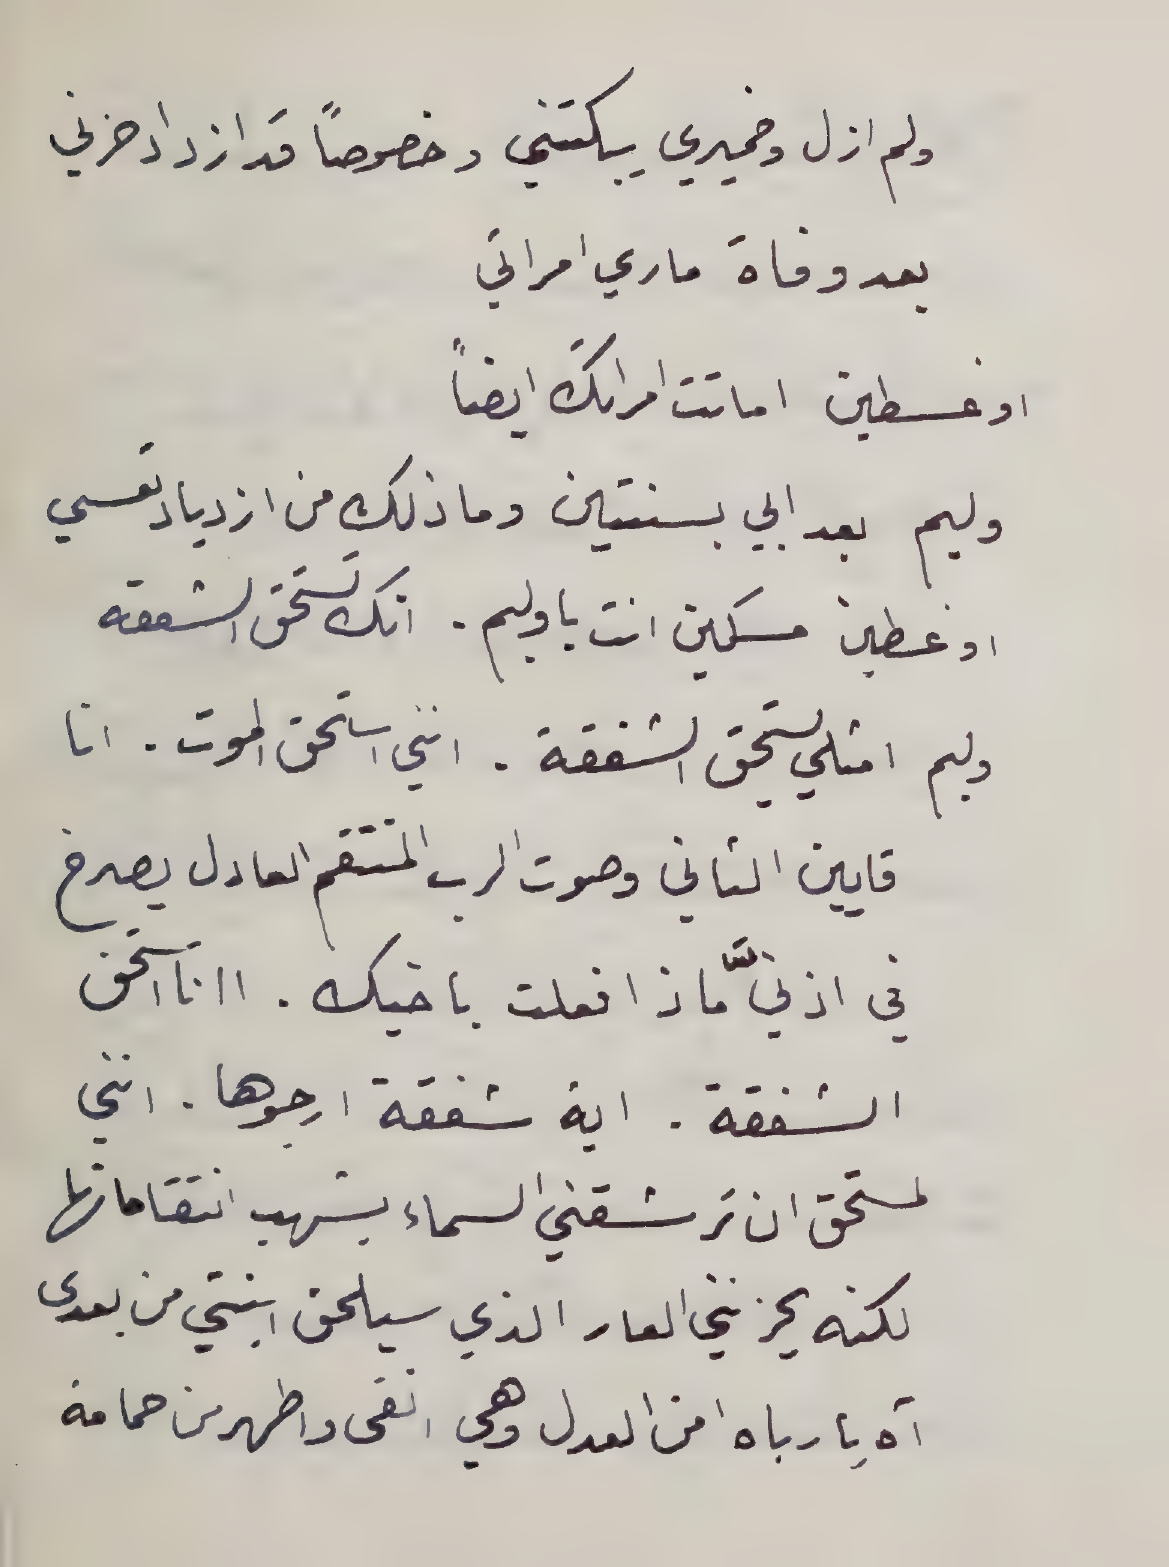 ولم ازل وضميري يبكتني وخصوصاً قد ازداد حزني
بعد وفاة ماري امراتي
اوغسطين اماتت امراتك ايضاً
وليم بعد ابي بسنتين وما ذلك من ازدياد تعسي
اوغسطين مسكين انت يا وليم . انك تستحق الشفقه
وليم امثلي يستحق الشفقة . انني استحق الموت . انا
قايين الثاني وصوت الرب المنتقم العادل يصرخ
في اذنيَّ ماذا فعلت باخيك . اانا استحق
الشفقة . اية شفقة ارجوها . انني
لمستحق ان ترشقني السماء بشهب انتقاماتها
لكنه يحزنني العار الذي سيلحق ابنتي من بعدى
آه يا رباه امن العدل وهي انقى واطهر من حمامة